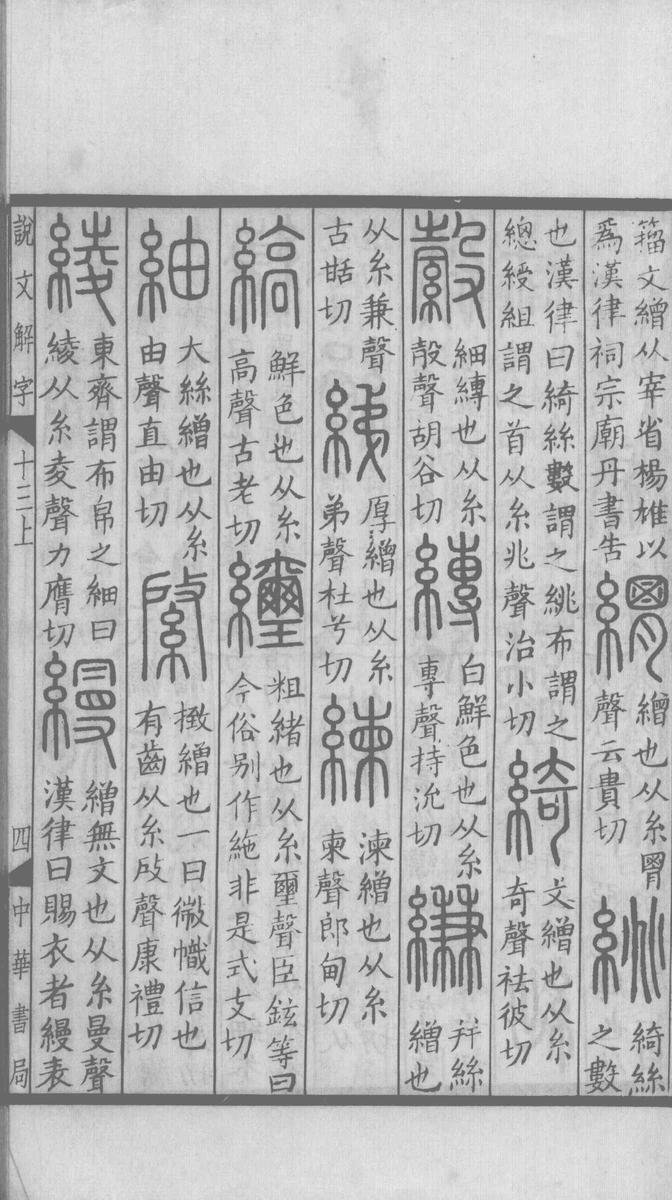 籀文繒从宰省楊雄以
爲漢律祠宗廟丹書告
緭
繒也从糸胃
聲云貴切
絩
綺絲
之數
也漢律曰綺絲數謂之絩布謂之
總綬組謂之首从糸兆聲治小切
綺
文繒也从糸
奇聲袪彼切
縠
細縳也从糸
㱿聲胡谷切
縳
白鮮色也从糸
專聲持沇切
縑
幷絲
繒也
从糸兼聲
古甛切
綈
厚繒也从糸
弟聲杜兮切
練
湅繒也从糸
柬聲郎甸切
縞
鮮色也从糸
高聲古老切
䌳
粗緒也从糸璽聲臣鉉等曰
今俗別作絁非是式支切
紬
大絲繒也从糸
由聲直由切
綮
㨖繒也一曰微幟信也
有齒从糸𢼄聲康禮切
綾
東齊謂布帛之細曰
綾从糸夌聲力膺切
縵
繒無文也从糸曼聲
漢律曰賜衣者縵表
說文解字 十三上 四 中華書局